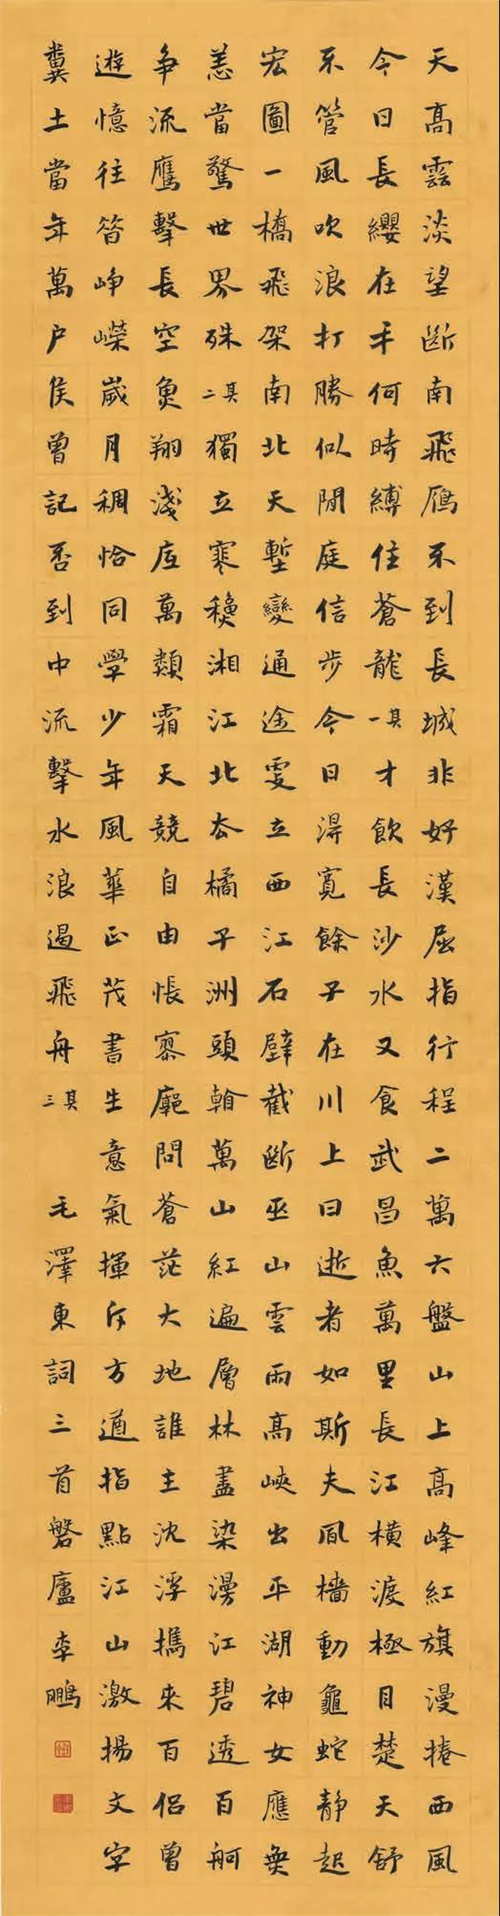 天高雲淡望斷南飛雁不到長城非好漢屈指行程二萬六盤山上高峰紅旗漫捲西風
今日長纓在手何時縛住蒼龍其一才飲長沙水又食武昌魚萬里長江橫渡極目楚天舒
不管風吹浪打勝似閒庭信步今日得寬餘子在川上曰逝者如斯夫風檣動龜蛇靜起
宏圖一橋飛架南北天塹變通途更立西江石壁截斷巫山雲雨高峽出平湖神女應無
恙當驚世界殊其二獨立寒穐湘江北去橘子洲頭看萬山紅遍層林盡染漫江碧透百舸
争流鷹擊長空魚翔淺底萬類霜天競自由悵寥廓問蒼茫大地誰主沈浮攜來百侶曾
遊憶往昔崢嶸歲月稠恰同學少年風華正茂書生意氣揮斥方遒指點江山激揚文字
糞土當年萬戶侯曾記否到中流擊水浪遏飛舟其三 毛澤東詞三首磐廬李鵬